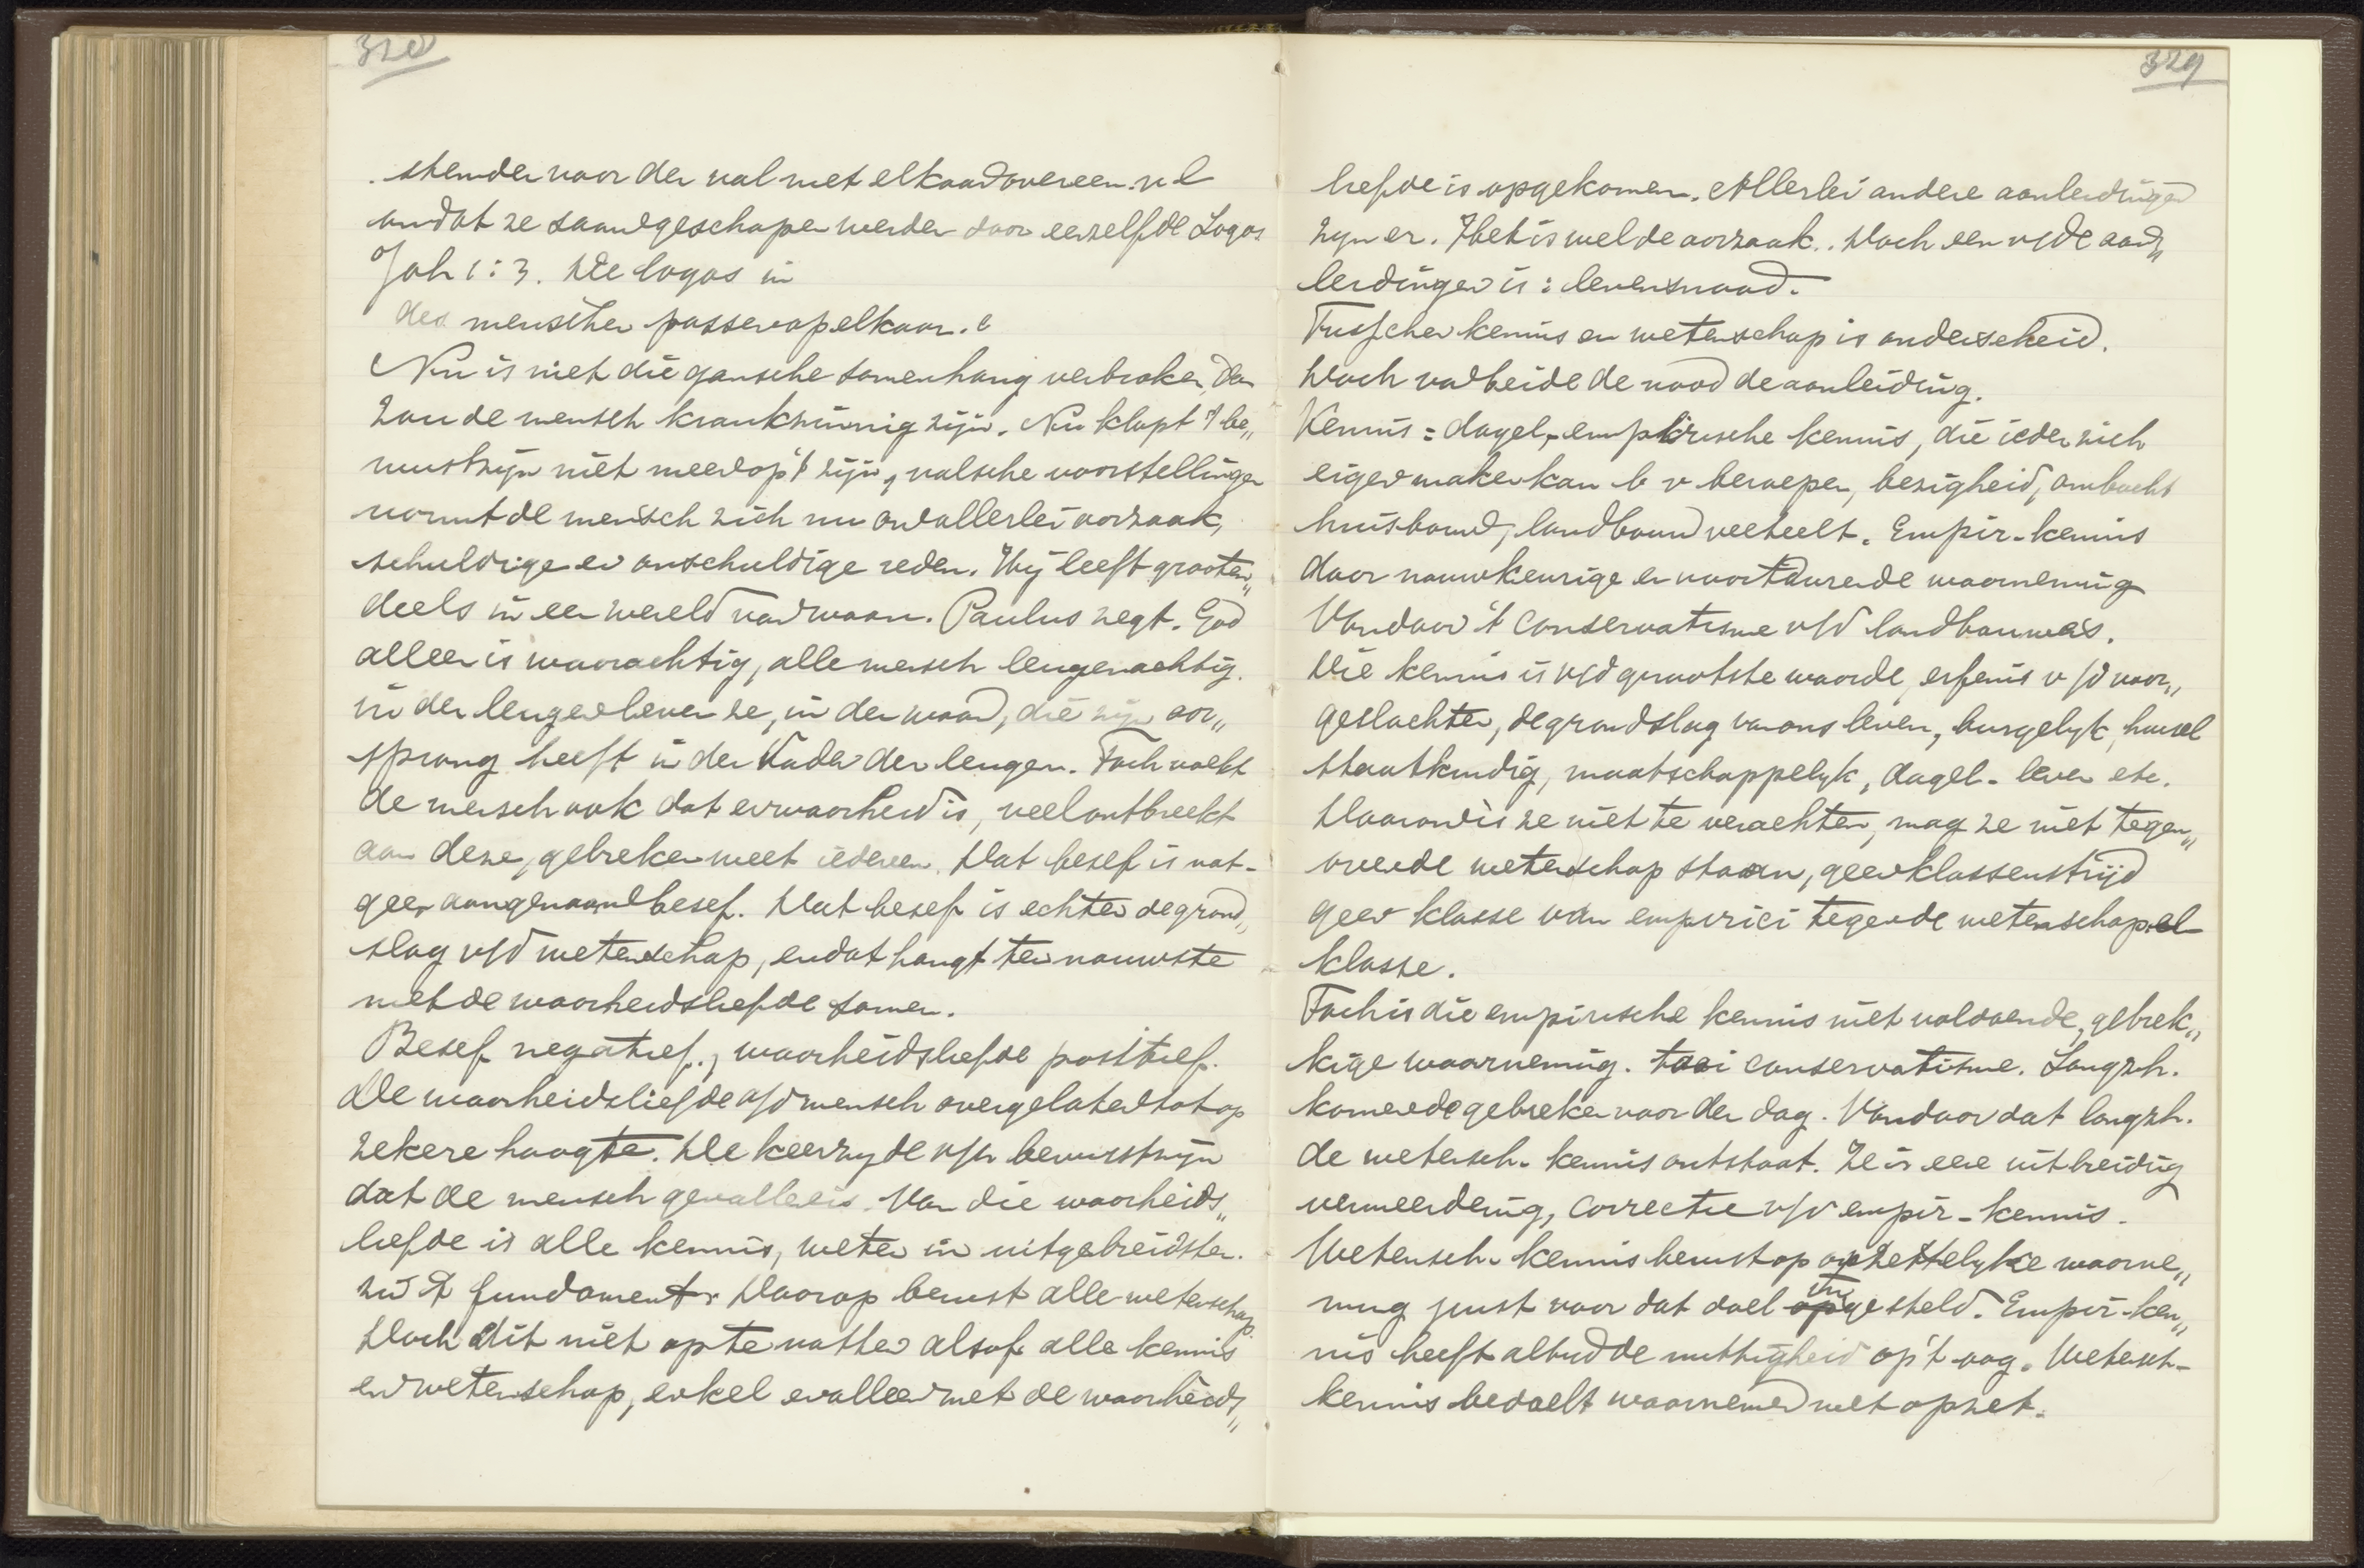 328
stemden voor den val met elkaar overeen. nl
omdat ze saamgeschapen werden door eenzelfde Logos
Joh 1:3. De logos in
den menschen passen op elkaar.
Nu is niet die gansche samenhang verbroken, dan
zou de mensch krankzinnig zijn. Nu klopt 't be„
wustzijn niet meer op 't zijn, valsche voorstellingen
vormt de mensch zich nu om allerlei oorzaak,
schuldige en onschuldige reden. Hij leeft grooten„
deels in een wereld van waan. Paulus zegt. God
alleen is waarachtig, alle mensch leugenachtig.
in den leugen leven ze, in den waan, die zijn oor„
sprong heeft in den Vader der leugen. Toch voelt
de mensch ook dat er waarheid is, veel ontbreekt
aan deze, gebreken weet iedereen. Dat besef is nat-
geen aangenaam besef. Dat besef is echter de grond„
slag v/d wetenschap, en dat hangt ten nauwste
met de waarheidsliefde samen.
Besef negatief., waarheidsliefde positief.
De waarheidsliefde v/d mensch overgelaten tot op
zekere hoogte. De keerzyde v/h bewustzyn
dat de mensch gevallen is. Van die waarheids„
liefde is alle kennis, weten in uitgebreidsten.
zin 't fundament. Daarop berust alle wetenschap.
Doch dit niet op te vatten alsof alle kennis
en wetenschap, enkel en alleen met de waarheids„
329
liefde is opgekomen. Allerlei andere aanleidingen
zyn er. Het is wel de oorzaak.. Doch een v/de aan„
leidingen is: levensnood.
Tusschen kennis en wetenschap is onderscheid.
Doch van beide de nood de aanleiding.
Kennis = dagel, empirische kennis, die ieder zich
eigen maken kan b v beroepen, bezigheid, ambacht
huisbouw, landbouw veeteelt. Empir- kennis
door nauwkeurige en voortdurende waarneming
Vandaar 't conservatisme v/d landbouwers.
Die kennis is v/d grootste waarde, erfenis v/d voor„
geslachten, de grondslag van ons leven, burgelyk, huisel
staatkundig, maatschappelyk, dagel- leven etc.
Daarom is ze niet te verachten, mag ze niet tegen„
over de wetenschap staan, geen klassenstrijd
geen klasse van empirici tegen de wetenschapel
klasse.
Toch is die empirische kennis niet voldoende, gebrek„
kige waarneming. taai conservatisme. Langzh.
komen de gebreken voor den dag. Vandaar dat langzh.
de wetensch- kennis ontstaat. Ze is eene uitbreiding
vermeerdering, correctie v/d empir- kennis.
Wetensch- kennis berust op opzettelyke waarne„
ming juist voor dat doel ingesteld. Empir- ken„
nis heeft altijd de nuttigheid op't oog. Wetensch-
kennis bedoelt waarnemen met opzet.